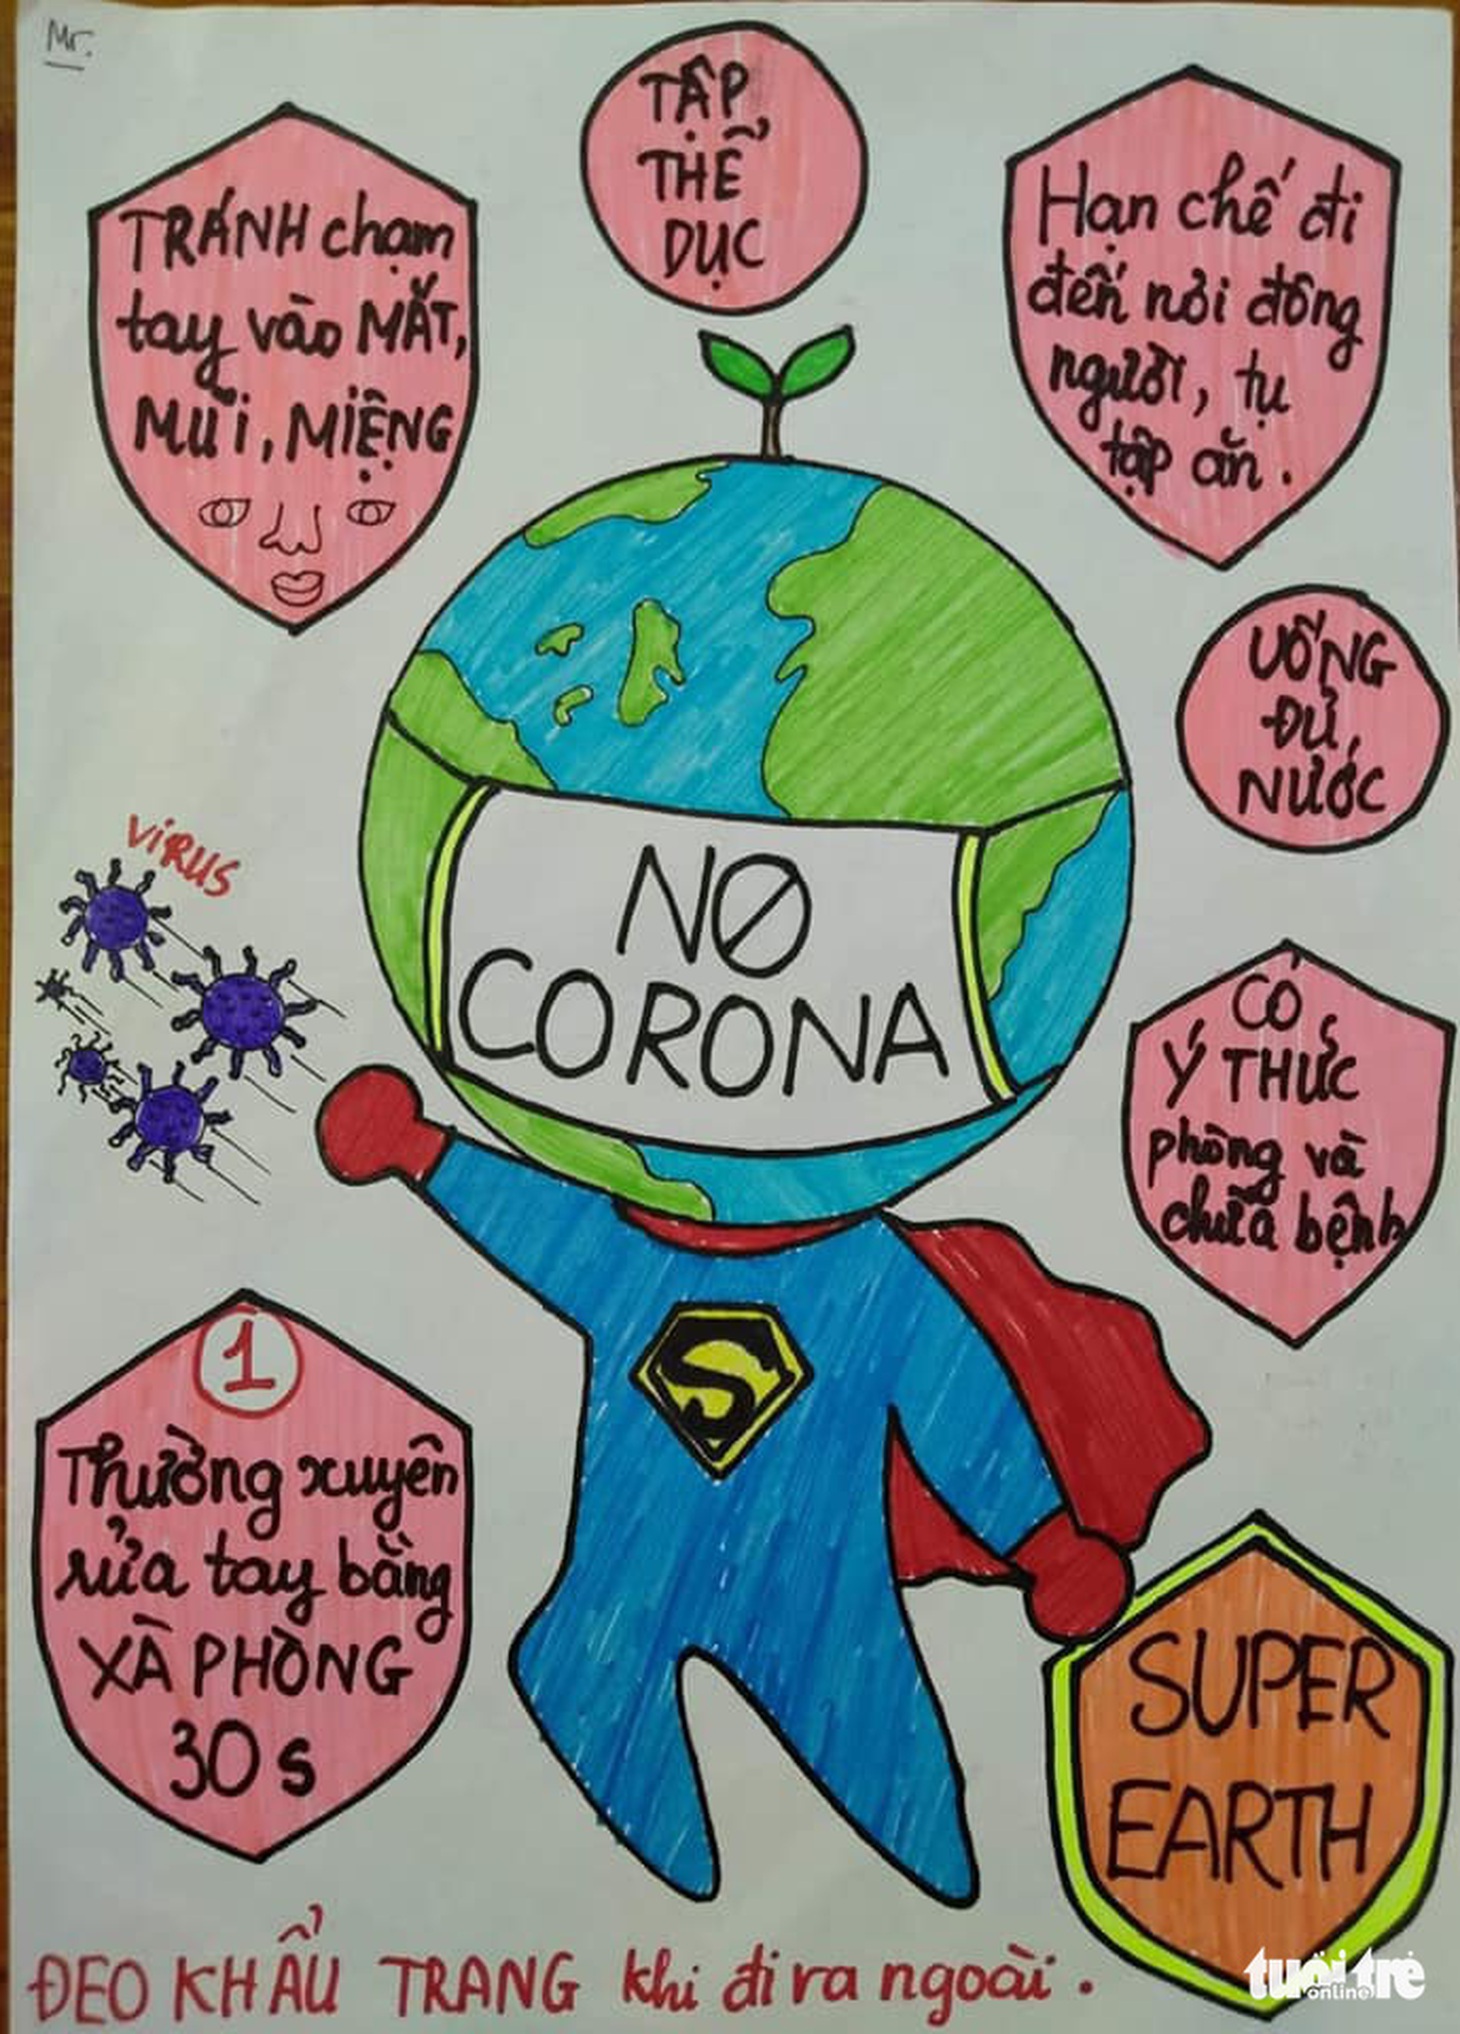 Mr.
TẬP
THỂ
DỤC
TRÁNH chạm
tay vào MẮT,
MŨI, MIỆNG
Hạn chế đi
đến nơi đông
người, tụ
tập ăn.
UỐNG
ĐỦ
NƯỚC
VIRUS
NO
CORONA
CÓ
Ý THỨC
phòng và
chữa bệnh
S
1
Thường xuyên
rửa tay bằng
XÀ PHÒNG
30s
SUPER
EARTH
ĐEO KHẨU TRANG khi đi ra ngoài.
tuổi trẻ
online